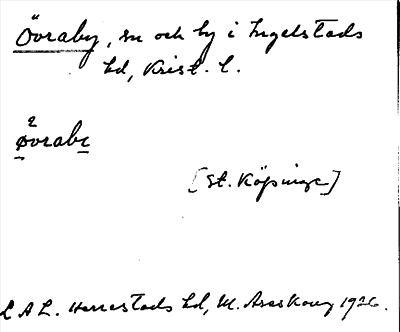 Övraby, sn och by i Ingelstads
hd, Krist. l.
2
øvrabe
[St. Köpinge]
LAL. Herrestads hd, M. Areskoug 1926.